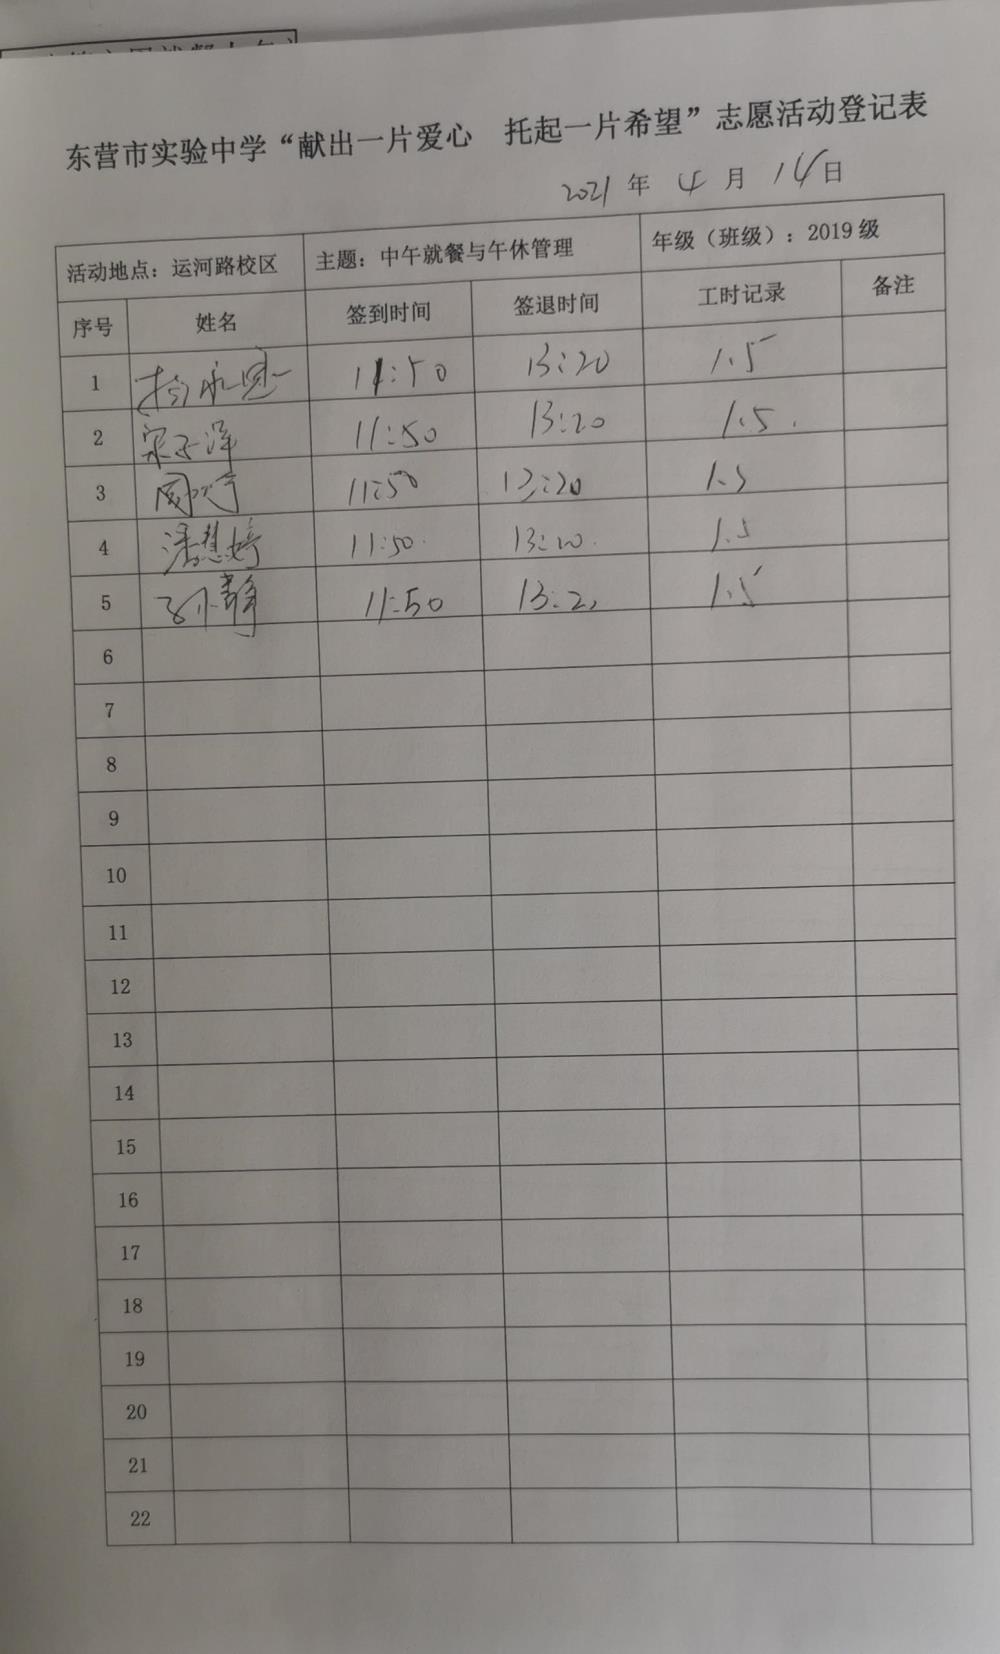 东营市实验中学“献出一片爱心 托起一片希望”志愿活动登记表
2021 年 4 月 14 日
活动地点：运河路校区 主题：中午就餐与午休管理 年级（班级）：2019 级
序号 姓名 签到时间 签退时间 工时记录 备注
1 11:50 13:20 1.5
2 宋子洋 11:50 13:20 1.5
3 11:50 13:20 1.5
4 潘慧婷 11:50 13:20 1.5
5 孙静 11:50 13:20 1.5
6
7
8
9
10
11
12
13
14
15
16
17
18
19
20
21
22